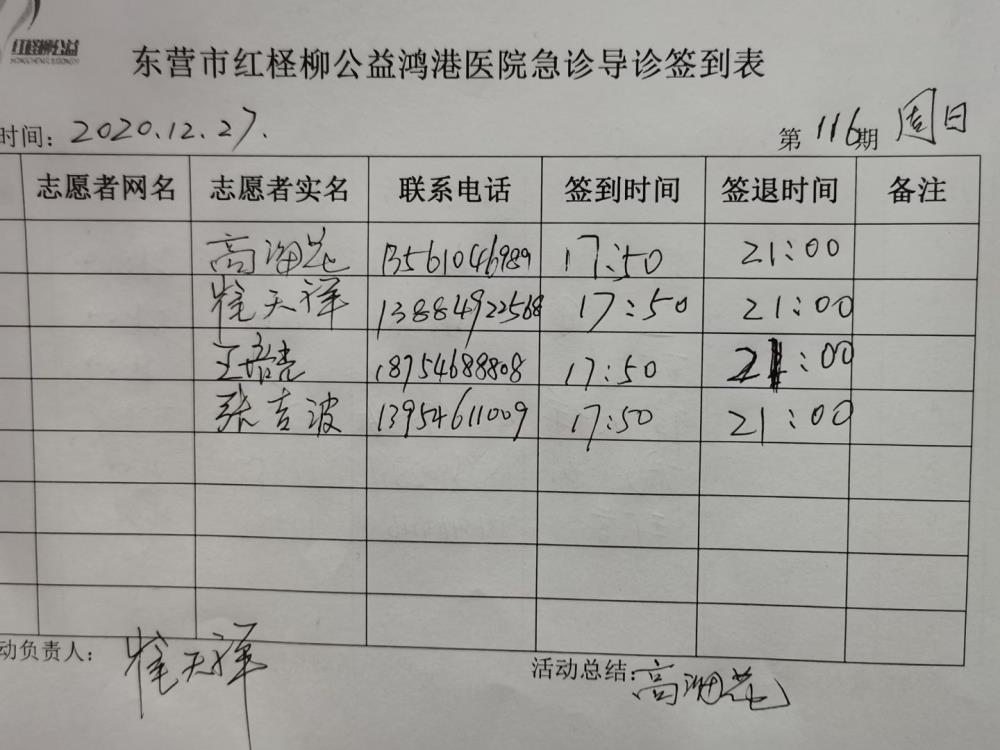 红柽柳公益
东营市红柽柳公益鸿港医院急诊导诊签到表
时间：2020.12.27. 第116期 周日
志愿者网名 志愿者实名 联系电话 签到时间 签退时间 备注
高海花 13561046989 17:50 21:00
崔天祥 13884922568 17:50 21:00
王培亮 18754688808 17:50 21:00
张吉波 13954611009 17:50 21:00
动负责人：崔天祥 活动总结：高海花